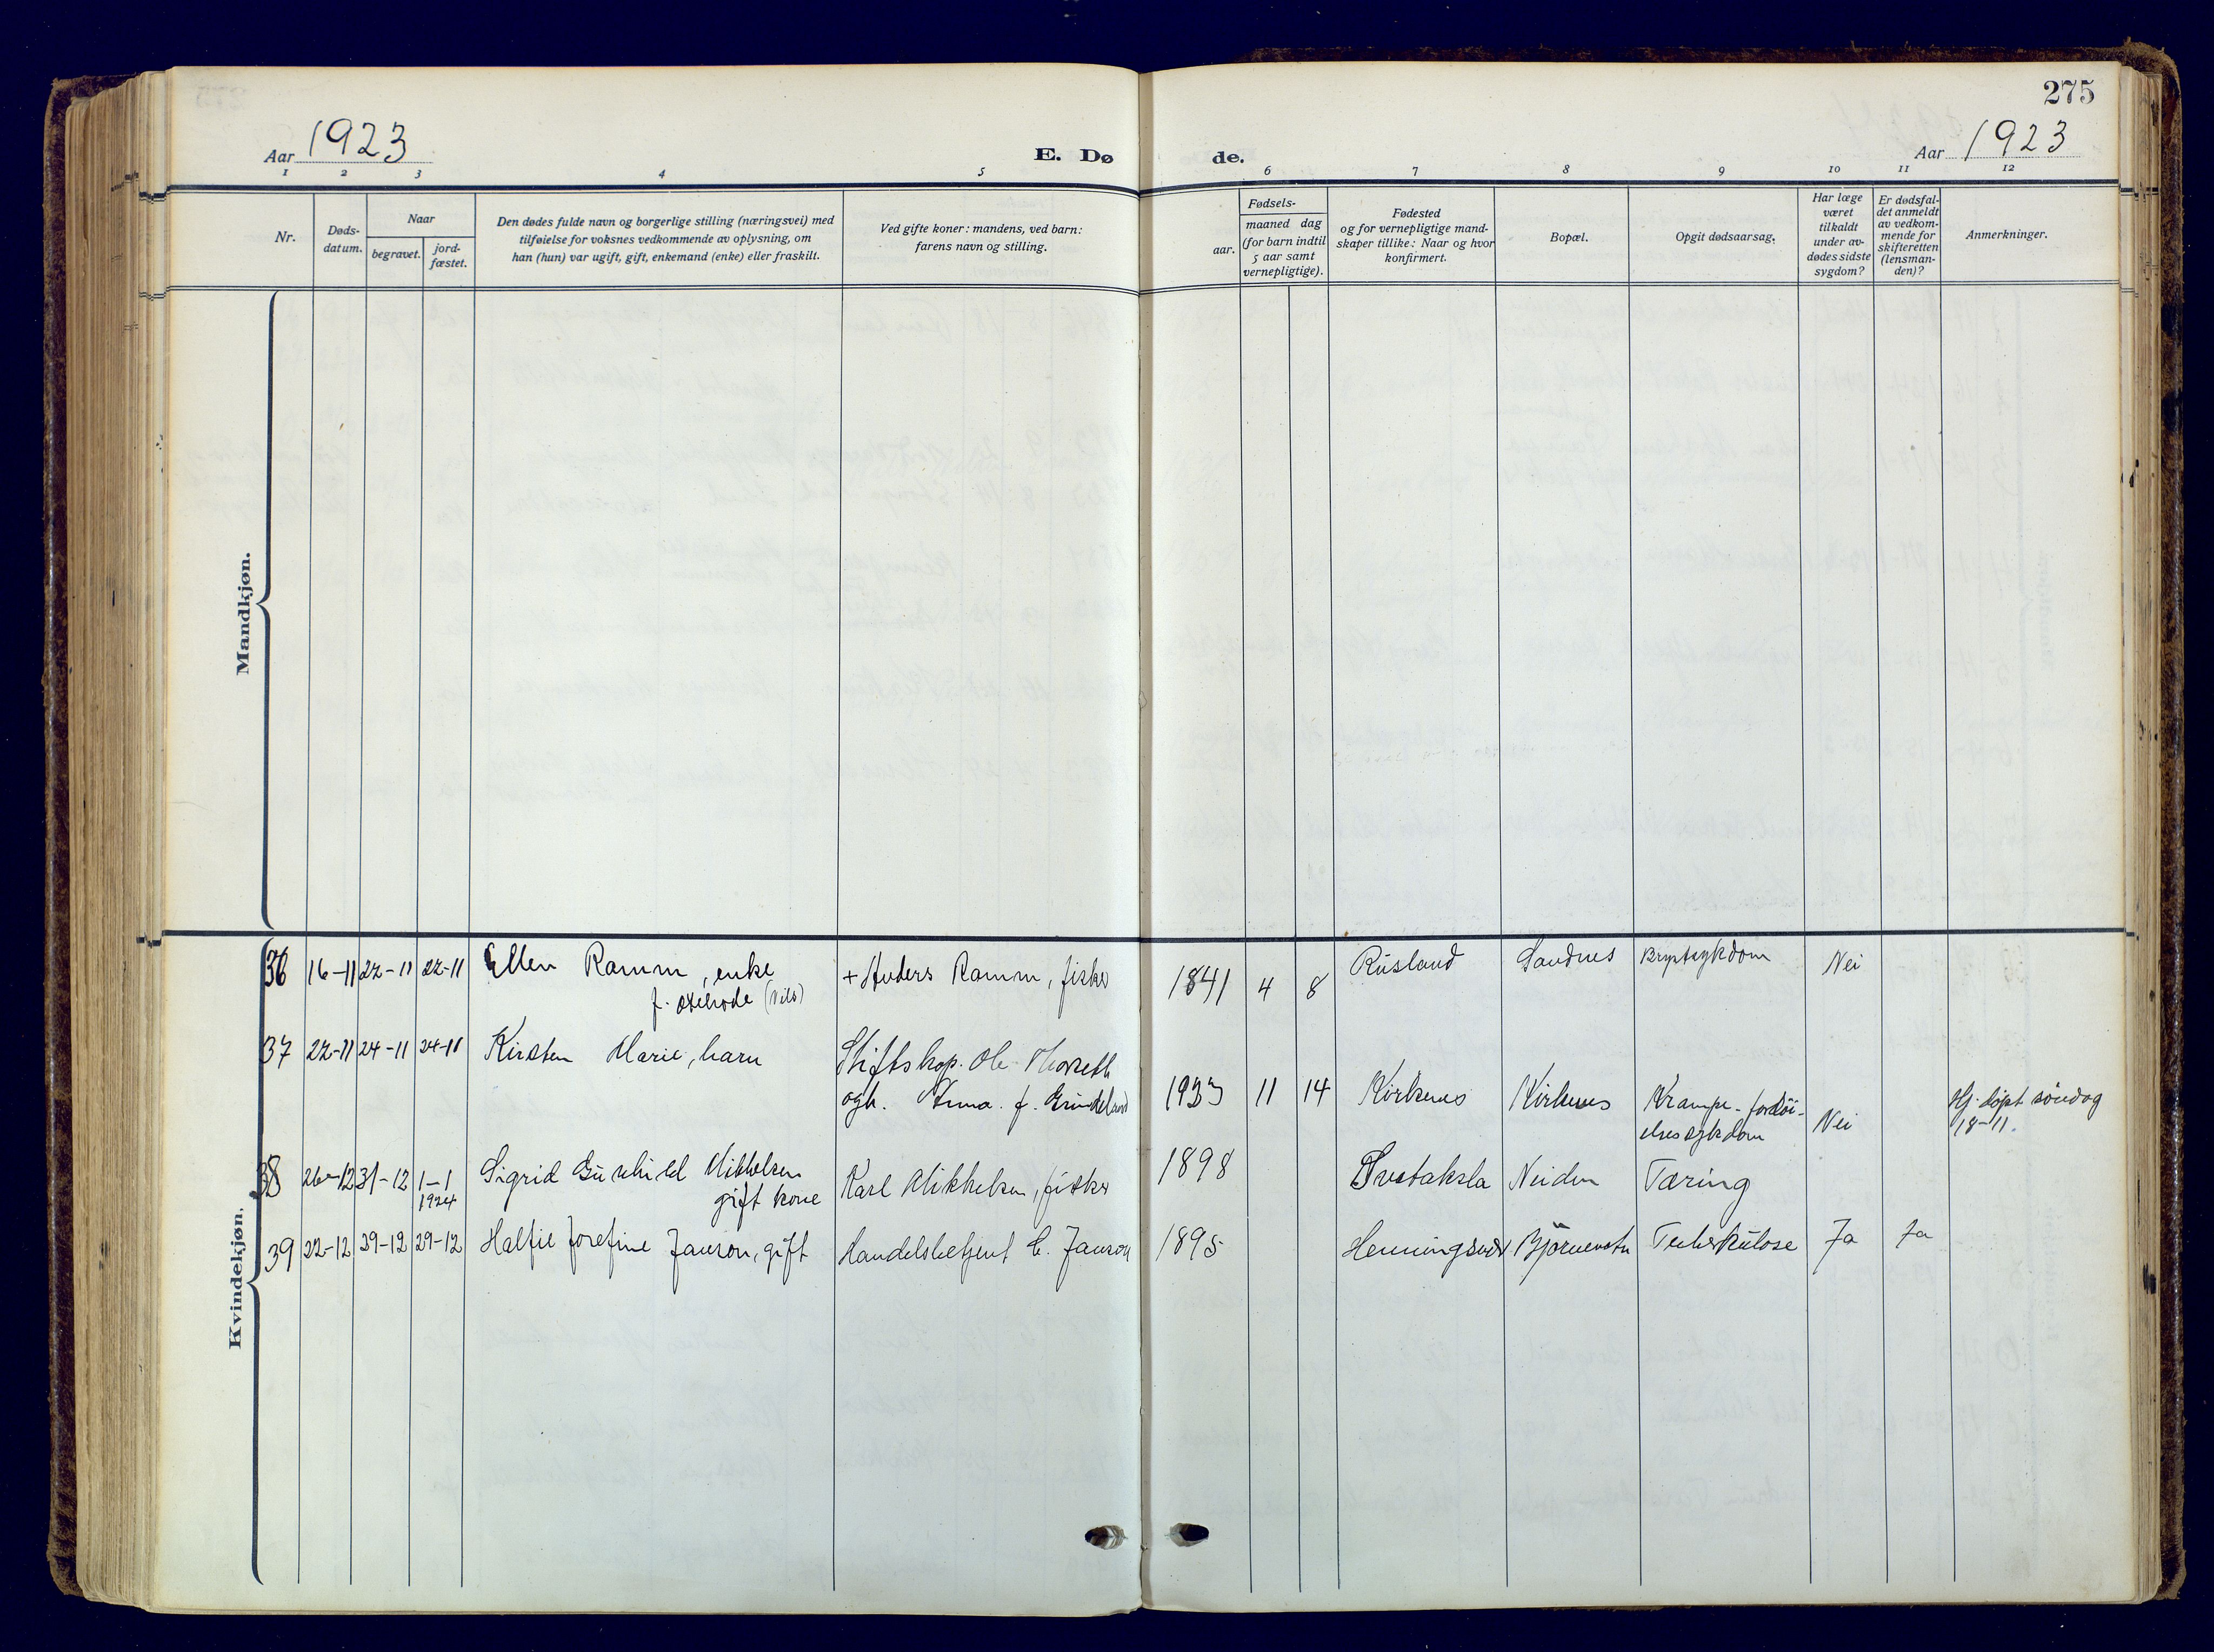 275
Aar 1923
E. Dø
de.
Aar 1923
1 2 3 4 5 6 7 8 9 10 11 12
Nr.
Døds-
datum.
Naar
begravet.
jord-
fæstet.
Den dødes fulde navn og borgerlige stilling (næringsvei) med
tilføielse for voksnes vedkommende av oplysning, om
han (hun) var ugift, gift, enkemand (enke) eller fraskilt.
Ved gifte koner: mandens, ved barn:
farens navn og stilling.
Fødsels-
aar.
maaned dag
(for barn indtil
5 aar samt
vernepligtige).
Fødested
og for vernepligtige mand-
skaper tillike: Naar og hvor
konfirmert.
Bopæl.
Opgit dødsaarsag.
Har læge
været
tilkaldt
under av-
dødes sidste
sygdom?
Er dødsfal-
det anmeldt
av vedkom-
mende for
skifteretten
(lensman-
den)?
Anmerkninger.
Mandkjøn.
Kvindekjøn.
36 16-11 22-11 22-11 Ellen Ramm, enke + Anders Ramm, fisker 1841 4 8 Rusland Sandnes Brystsykdom Nei
f. (Nils)
37 22-11 24-11 24-11 Kirsten Marie, barn Stiftskap. Ole Thorseth
ogh. Anna. f. 1923 11 14 Kirkenes Kirkenes Krampe-fordöi-
elsessykdom Nei Hj. döpt söndag
18-11.
38 26-12 31-12 1-1
1924 Sigrid Gunhild Mikkelsen
gift kone Karl Mikkelsen, fisker 1898 Neiden Tæring
39 22-12 29-12 29-12 Josefine Janson, gift Handelsbetjent C. Janson 1895 Henningsvær Björnevatn Tuberkulose Ja Ja